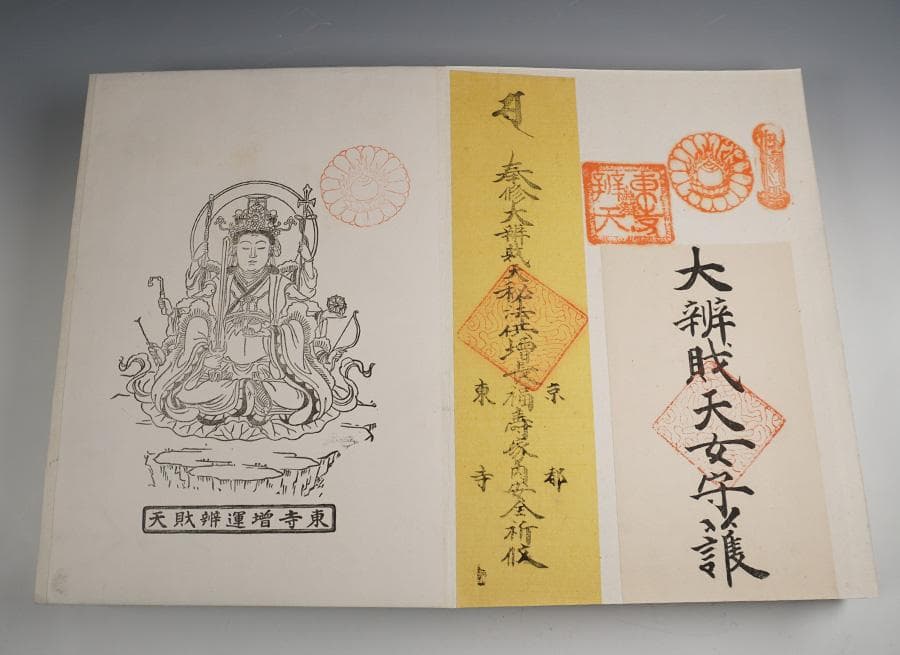 大辨財天女守護
東寺
辨天
奉修大辨財天秘法供增長福壽家内安全祈攸
京都
東寺
東寺增運辨財天